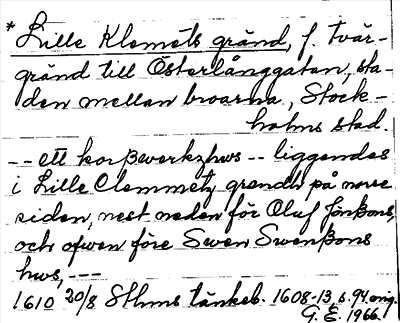 * Lille Klemets gränd, f. tvär-
gränd till Österlånggatan, sta-
den mellan broarna, Stock-
holms stad.
-- ett korßwerkzhws -- liggendes
i Lille Clemmetz grendh på norre
siden, nest neden för Oluf Jönßons,
och ofwen före Swen Swenßons
hws, ---
1610 20/8 Sthms tänkeb. 1608-13 s. 94 orig.
G. E. 1966.